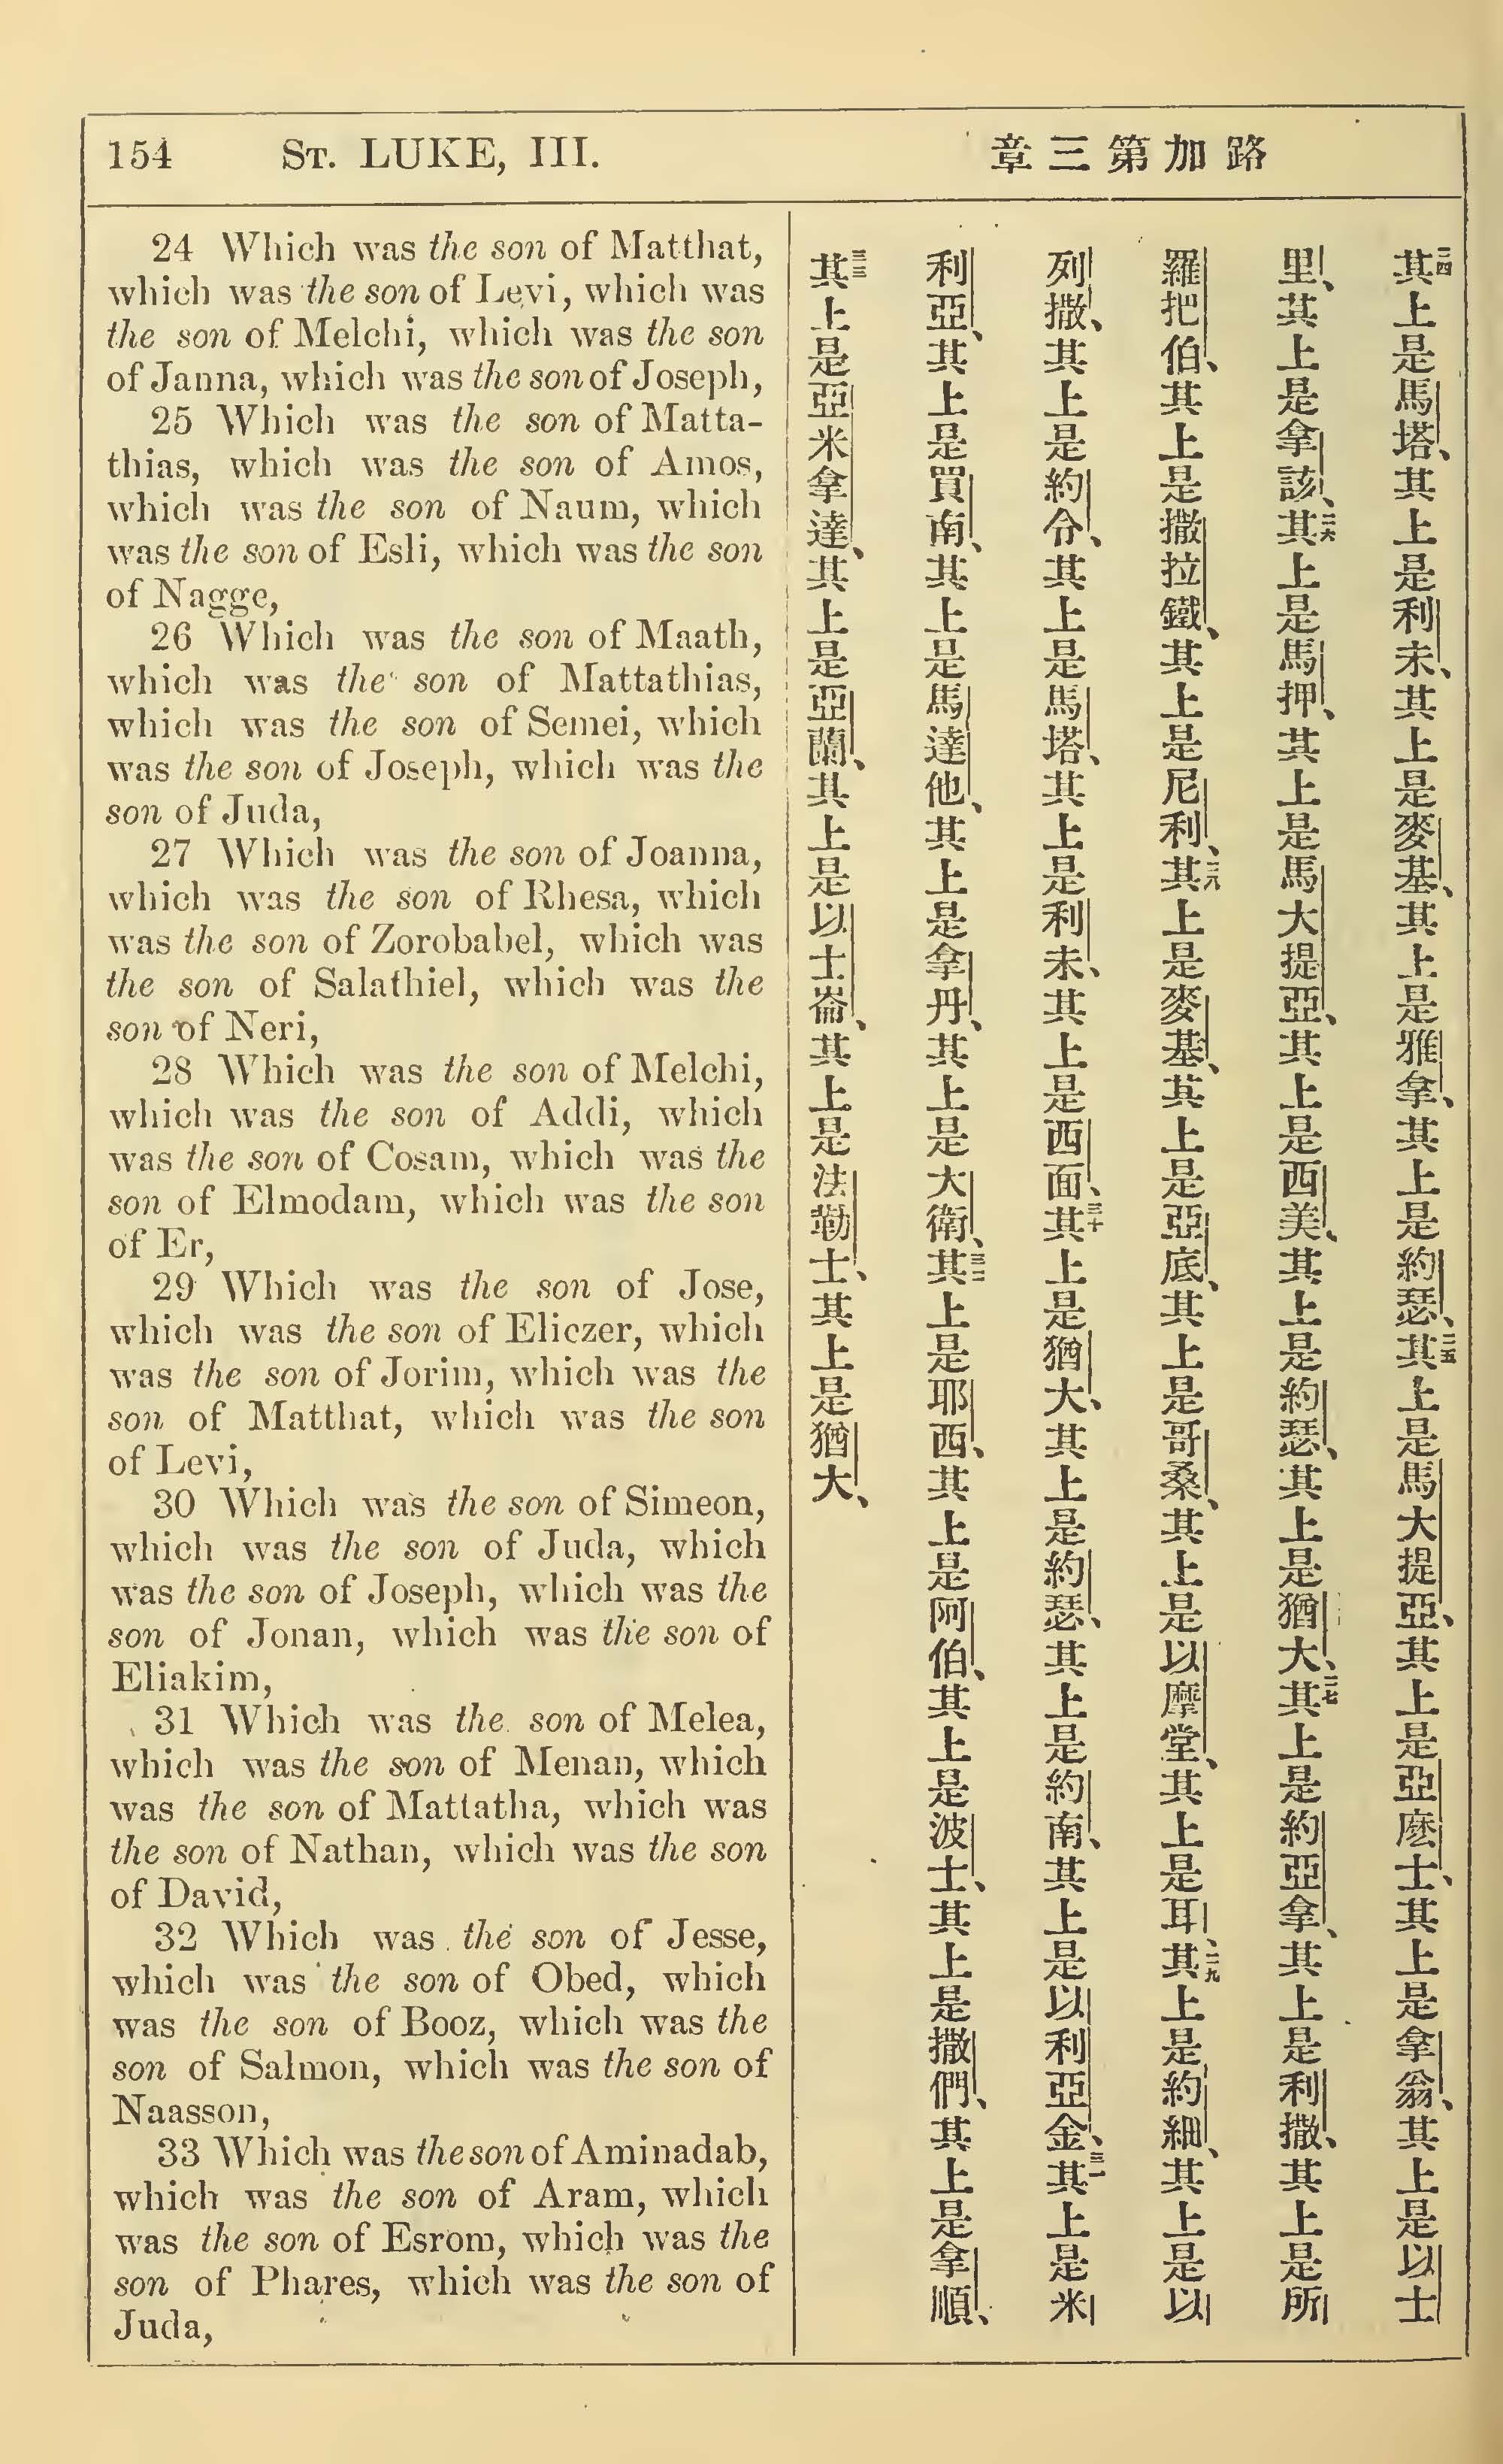 154 ST. LUKE, III.
路加第三章
24 Which was the son of Matthat,
which was the son of Levi, which was
the son of Melchi, which was the son
of Janna, which was the son of Joseph,
25 Which was the son of Matta-
thias, which was the son of Amos,
which was the son of Naum, which
was the son of Esli, which was the son
of Nagge,
26 Which was the son of Maath,
which was the son of Mattathias,
which was the son of Semei, which
was the son of Joseph, which was the
son of Juda,
27 Which was the son of Joanna,
which was the son of Rhesa, which
was the son of Zorobabel, which was
the son of Salathiel, which was the
son of Neri,
28 Which was the son of Melchi,
which was the son of Addi, which
was the son of Cosam, which was the
son of Elmodam, which was the son
of Er,
29 Which was the son of Jose,
which was the son of Eliezer, which
was the son of Jorim, which was the
son of Matthat, which was the son
of Levi,
30 Which was the son of Simeon,
which was the son of Juda, which
was the son of Joseph, which was the
son of Jonan, which was the son of
Eliakim,
31 Which was the son of Melea,
which was the son of Menan, which
was the son of Mattatha, which was
the son of Nathan, which was the son
of David,
32 Which was the son of Jesse,
which was the son of Obed, which
was the son of Booz, which was the
son of Salmon, which was the son of
Naasson,
33 Which was the son of Aminadab,
which was the son of Aram, which
was the son of Esrom, which was the
son of Phares, which was the son of
Juda,
二四其上是馬塔、其上是利未、其上是麥基、其上是雅拿、其上是約瑟、二五其上是馬大提亞、其上是亞麽士、其上是拿翁、其上是以士
里、其上是拿該、二六其上是馬押、其上是馬大提亞、其上是西美、其上是約瑟、其上是猶大、二七其上是約亞拿、其上是利撒、其上是所
羅把伯、其上是撒拉鐵、其上是尼利、二八其上是麥基、其上是亞底、其上是哥桑、其上是以摩堂、其上是耳、二九其上是約細、其上是以
列撒、其上是約令、其上是馬塔、其上是利未、其上是西面、三十其上是猶大、其上是約瑟、其上是約南、其上是以利亞金、三一其上是米
利亞、其上是買南、其上是馬達他、其上是拿丹、其上是大衛、三二其上是耶西、其上是阿伯、其上是波士、其上是撒們、其上是拿順、
三三其上是亞米拿達、其上是亞蘭、其上是以士崙、其上是法勒士、其上是猶大、